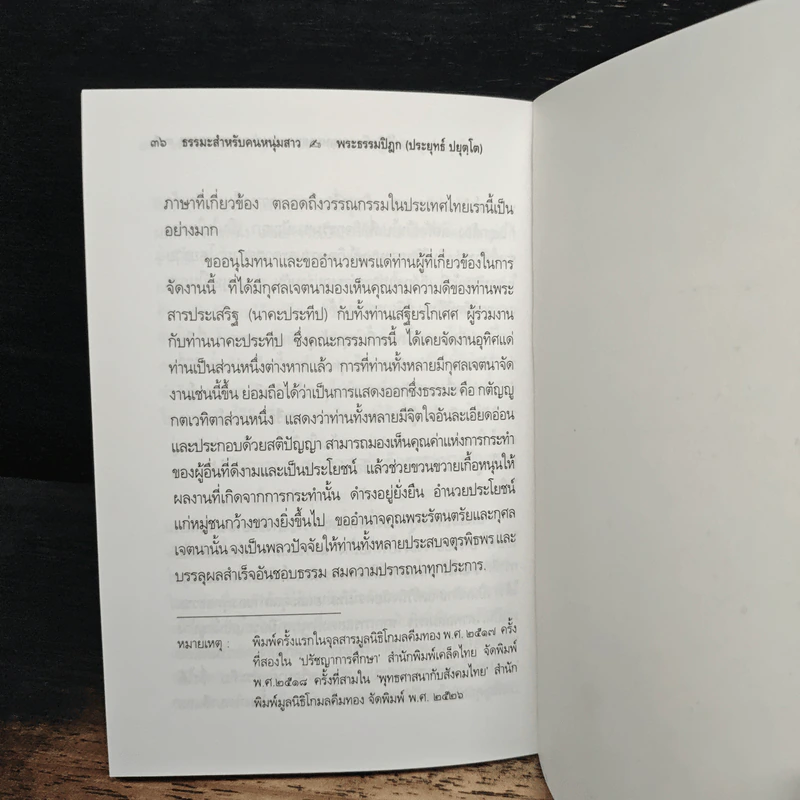 ๓๖ ธรรมะสำหรับคนหนุ่มสาว พระธรรมปิฎก (ประยุทธ์ ปยุตฺโต)
ภาษาที่เกี่ยวข้อง ตลอดถึงวรรณกรรมในประเทศไทยเรานี้เป็น
อย่างมาก
ขออนุโมทนาและขออำนวยพรแด่ท่านผู้ที่เกี่ยวข้องในการ
จัดงานนี้ ที่ได้มีกุศลเจตนามองเห็นคุณงามความดีของท่านพระ
สารประเสริฐ (นาคะประทีป) กับทั้งท่านเสฐียรโกเศศ ผู้ร่วมงาน
กับท่านนาคะประทีป ซึ่งคณะกรรมการนี้ ได้เคยจัดงานอุทิศแด่
ท่านเป็นส่วนหนึ่งต่างหากแล้ว การที่ท่านทั้งหลายมีกุศลเจตนาจัด
งานเช่นนี้ขึ้น ย่อมถือได้ว่าเป็นการแสดงออกซึ่งธรรมะ คือ กตัญญู
กตเวทิตาส่วนหนึ่ง แสดงว่าท่านทั้งหลายมีจิตใจอันละเอียดอ่อน
และประกอบด้วยสติปัญญา สามารถมองเห็นคุณค่าแห่งการกระทำ
ของผู้อื่นที่ดีงามและเป็นประโยชน์ แล้วช่วยขวนขวายเกื้อหนุนให้
ผลงานที่เกิดจากการกระทำนั้น ดำรงอยู่ยั่งยืน อำนวยประโยชน์
แก่หมู่ชนกว้างขวางยิ่งขึ้นไป ขออำนาจคุณพระรัตนตรัยและกุศล
เจตนานั้น จงเป็นพลวปัจจัยให้ท่านทั้งหลายประสบจตุรพิธพร และ
บรรลุผลสำเร็จอันชอบธรรม สมความปรารถนาทุกประการ.
หมายเหตุ : พิมพ์ครั้งแรกในจุลสารมูลนิธิโกมลคีมทอง พ.ศ. ๒๕๑๗ ครั้ง
ที่สองใน 'ปรัชญาการศึกษา' สำนักพิมพ์เคล็ดไทย จัดพิมพ์
พ.ศ.๒๕๑๘ ครั้งที่สามใน 'พุทธศาสนากับสังคมไทย' สำนัก
พิมพ์มูลนิธิโกมลคีมทอง จัดพิมพ์ พ.ศ. ๒๕๒๖